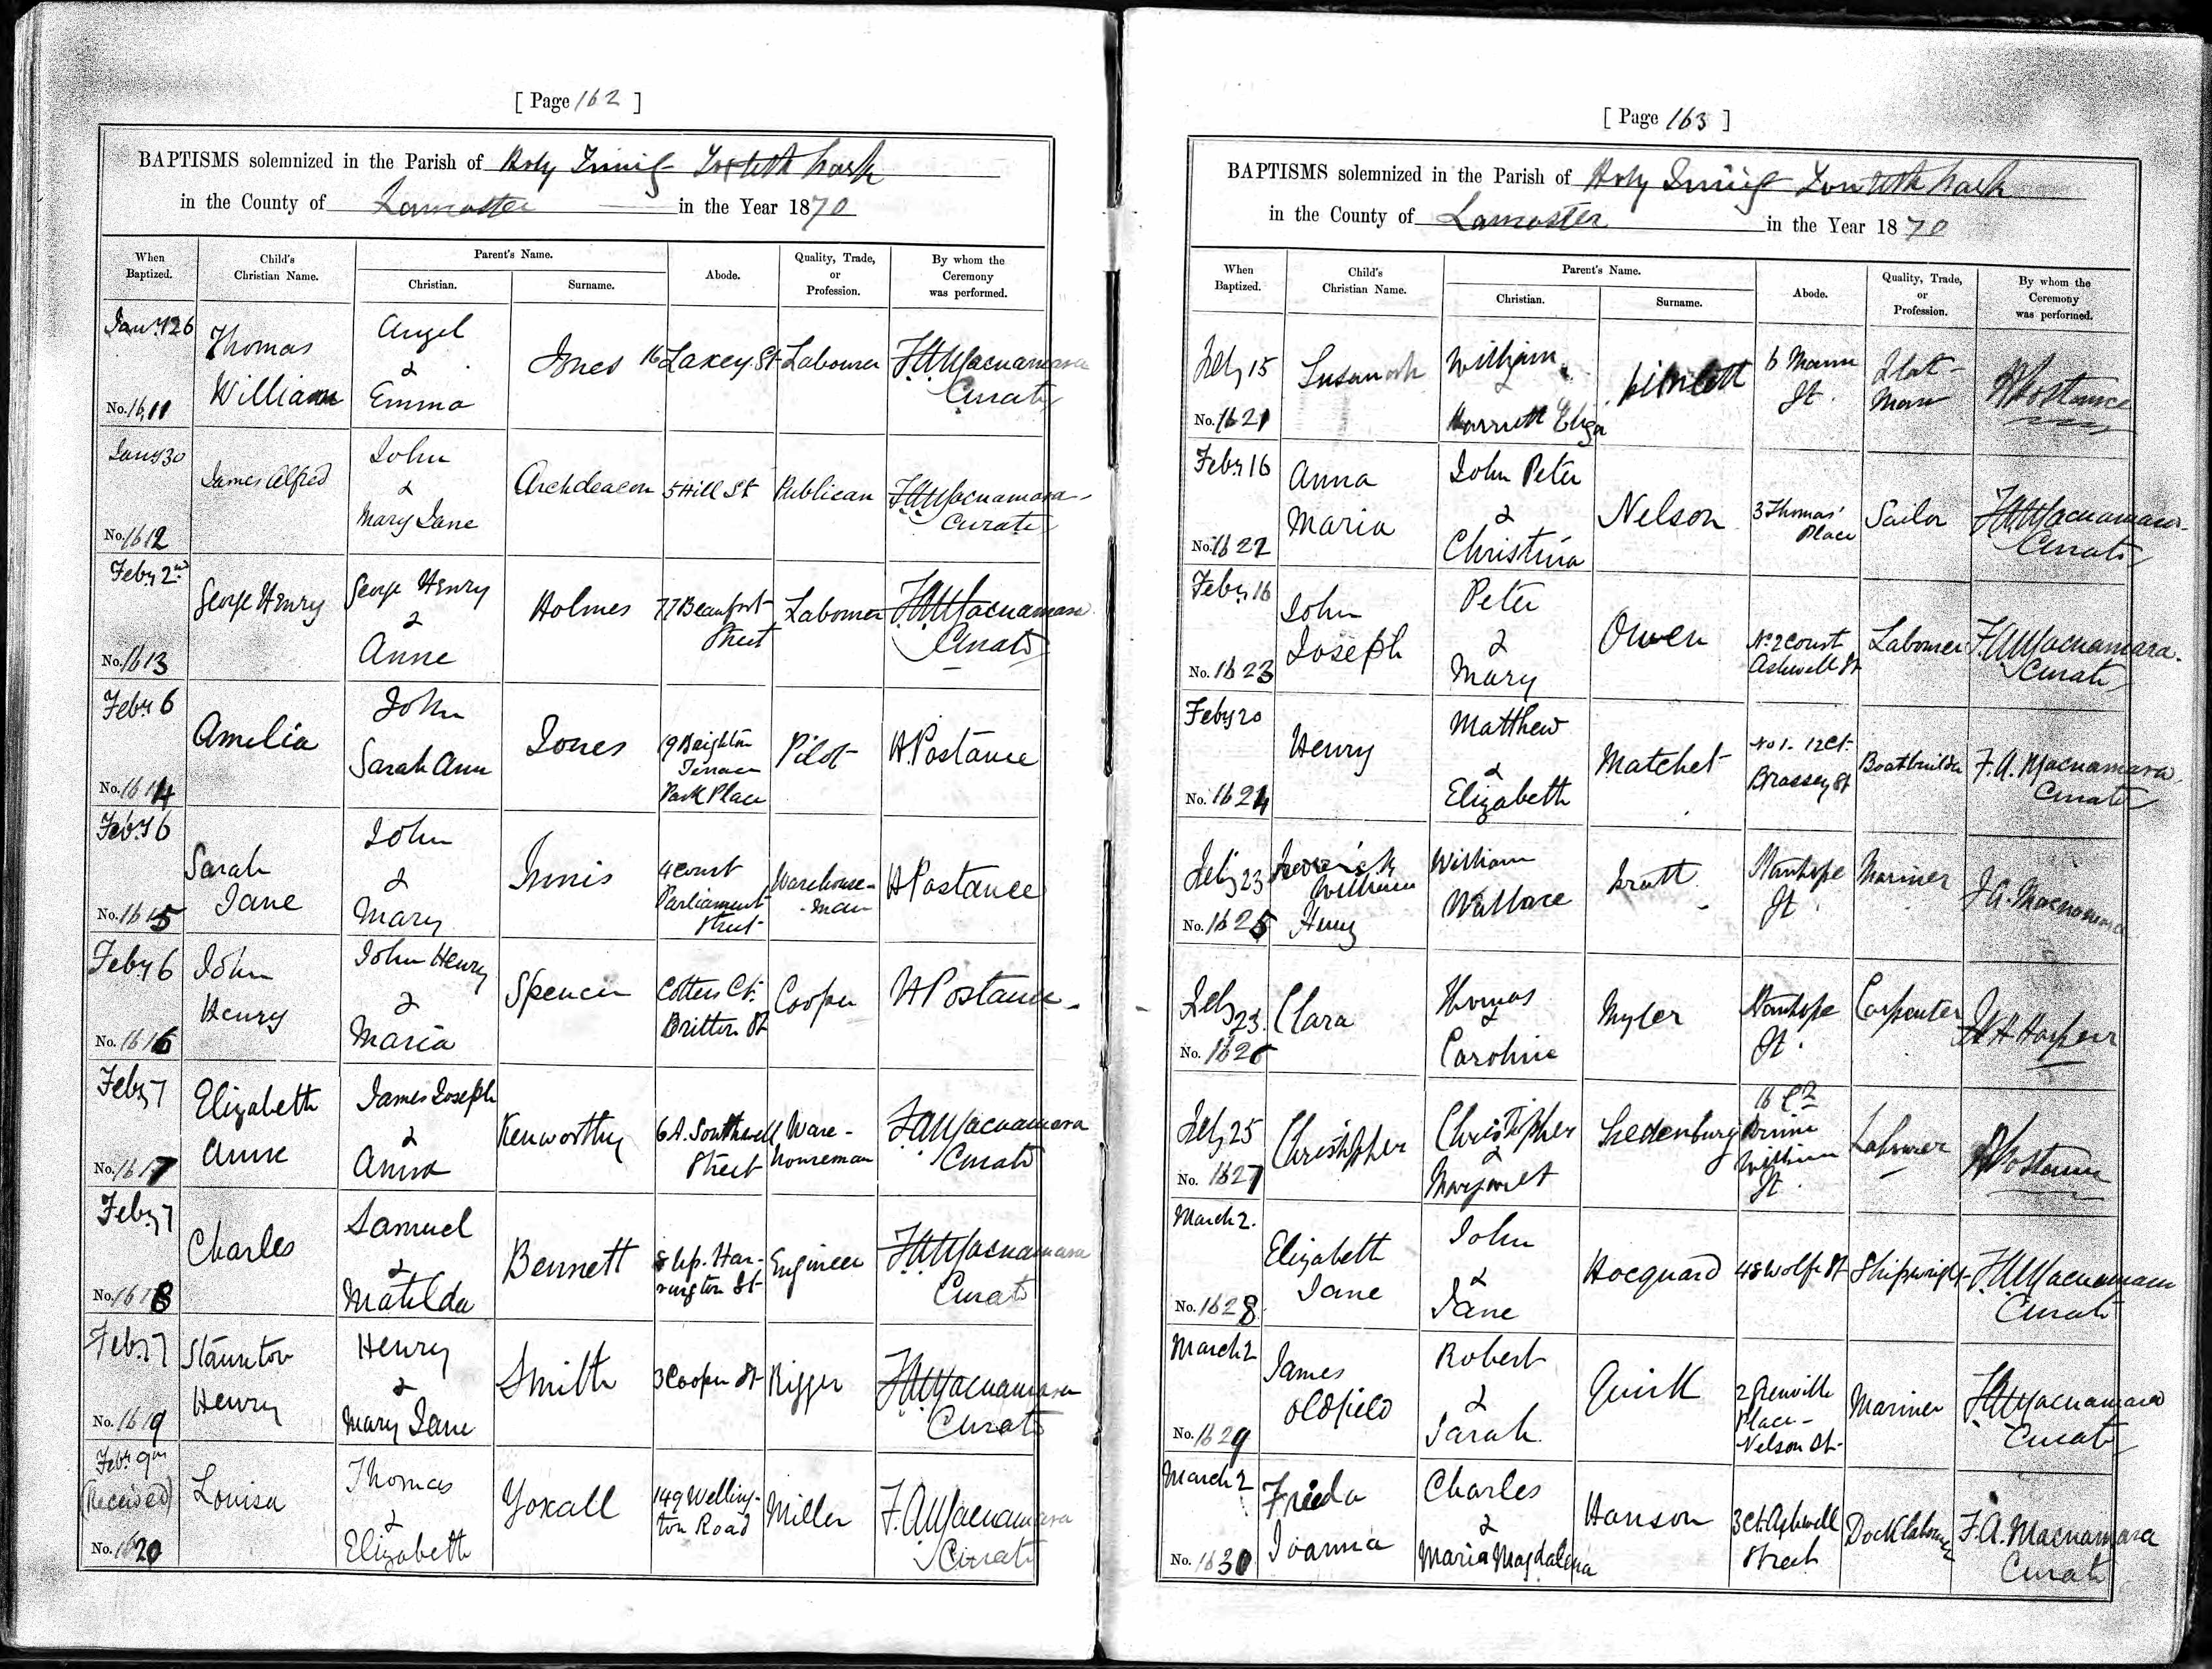 [ Page 162 ]
BAPTISMS solemnized in the Parish of Holy Trinity Toxteth Park
in the County of Lancaster in the Year 1870
When Baptized. Child's Christian Name. Parent's Name. Abode. Quality, Trade, or Profession. By whom the Ceremony was performed.
Christian. Surname.
Jany 26 No. 1611 Thomas William Angel & Emma Jones 16 Laxey St Labourer F.A. Macnamara Curate
Jany 30 No. 1612 James Alfred John & Mary Jane Archdeacon 5 Hill St Publican F.A. Macnamara Curate
Feby 2nd No. 1613 George Henry George Henry & Anne Holmes 77 Beaufort Street Labourer F.A. Macnamara Curate
Feby 6 No. 1614 Amelia John Sarah Ann Jones 19 Brighton Terrace Park Place Pilot H. Postance
Feby 6 No. 1615 Sarah Jane John & Mary Innis 4 Court Parliament Street Warehouse-man H Postance
Feby 6 No. 1616 John Henry John Henry & Maria Spencer Cotters Ct. Britton St Cooper H Postance
Feby 7 No. 1617 Elizabeth Anne James Joseph & Anna Kenworthy 6 A. Southwell Street Ware-houseman F.A. Macnamara Curate
Feby 7 No. 1618 Charles Samuel & Matilda Bennett 8 Up. Har-rington St Engineer F.A. Macnamara Curate
Feby 7 No. 1619 Staunton Henry Henry & Mary Jane Smith 3 Cooper St Rigger F.A. Macnamara Curate
Feby 9th (Received) No. 1620 Louisa Thomas & Elizabeth Yoxall 149 Welling-ton Road Miller F.A. Macnamara Curate
[ Page 163 ]
BAPTISMS solemnized in the Parish of Holy Trinity Toxteth Park
in the County of Lancaster in the Year 1870
When Baptized. Child's Christian Name. Parent's Name. Abode. Quality, Trade, or Profession. By whom the Ceremony was performed.
Christian. Surname.
Feby 15 No. 1621 Susannah William Harriett Eliza 6 Mann St. Flat-man H Postance
Feby 16 No. 1622 Anna Maria John Peter & Christina Nelson 3 Thomas' Place Sailor F.A. Macnamara Curate
Feby 16 No. 1623 John Joseph Peter & Mary Owen No. 2 Court Ashwell St Labourer F.A. Macnamara. Curate
Feby 20 No. 1624 Henry Matthew & Elizabeth Matchet No 1. 12 Ct. Brassey St Boatbuilder F.A. Macnamara, Curate
Feby 23 No. 1625 Frederick William Henry William Wallace Stanhope St. Mariner F A. Macnamara
Feby 23. No. 1626 Clara Thomas & Caroline Myler Stanhope St. Carpenter H Harper
Feby 25 No. 1627 Christopher Christopher & Margaret Ledenburg 16 Ct Prince William St. Labourer H Postance
March 2. No. 1628 Elizabeth Jane John & Jane Hocquard 48 Wolfe St Shipwright F.A. Macnamara Curate
March 2 No. 1629 James Oldfield Robert & Sarah Quirk 2 Grenville Place Nelson St. Mariner F.A. Macnamara Curate
March 2 No. 1630 Frieda Joanna Charles & Maria Magdalena Hanson 3 Ct. Ashwell Street Dock labourer F.A. Macnamara Curate